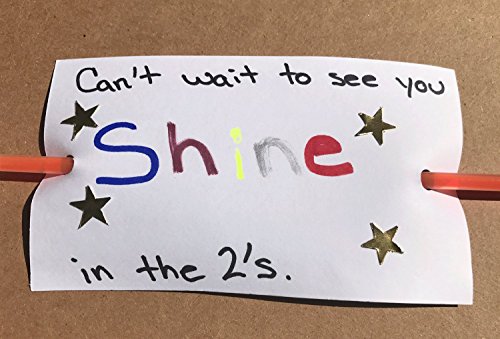 Can't wait to see you
Shine
in the 2's.